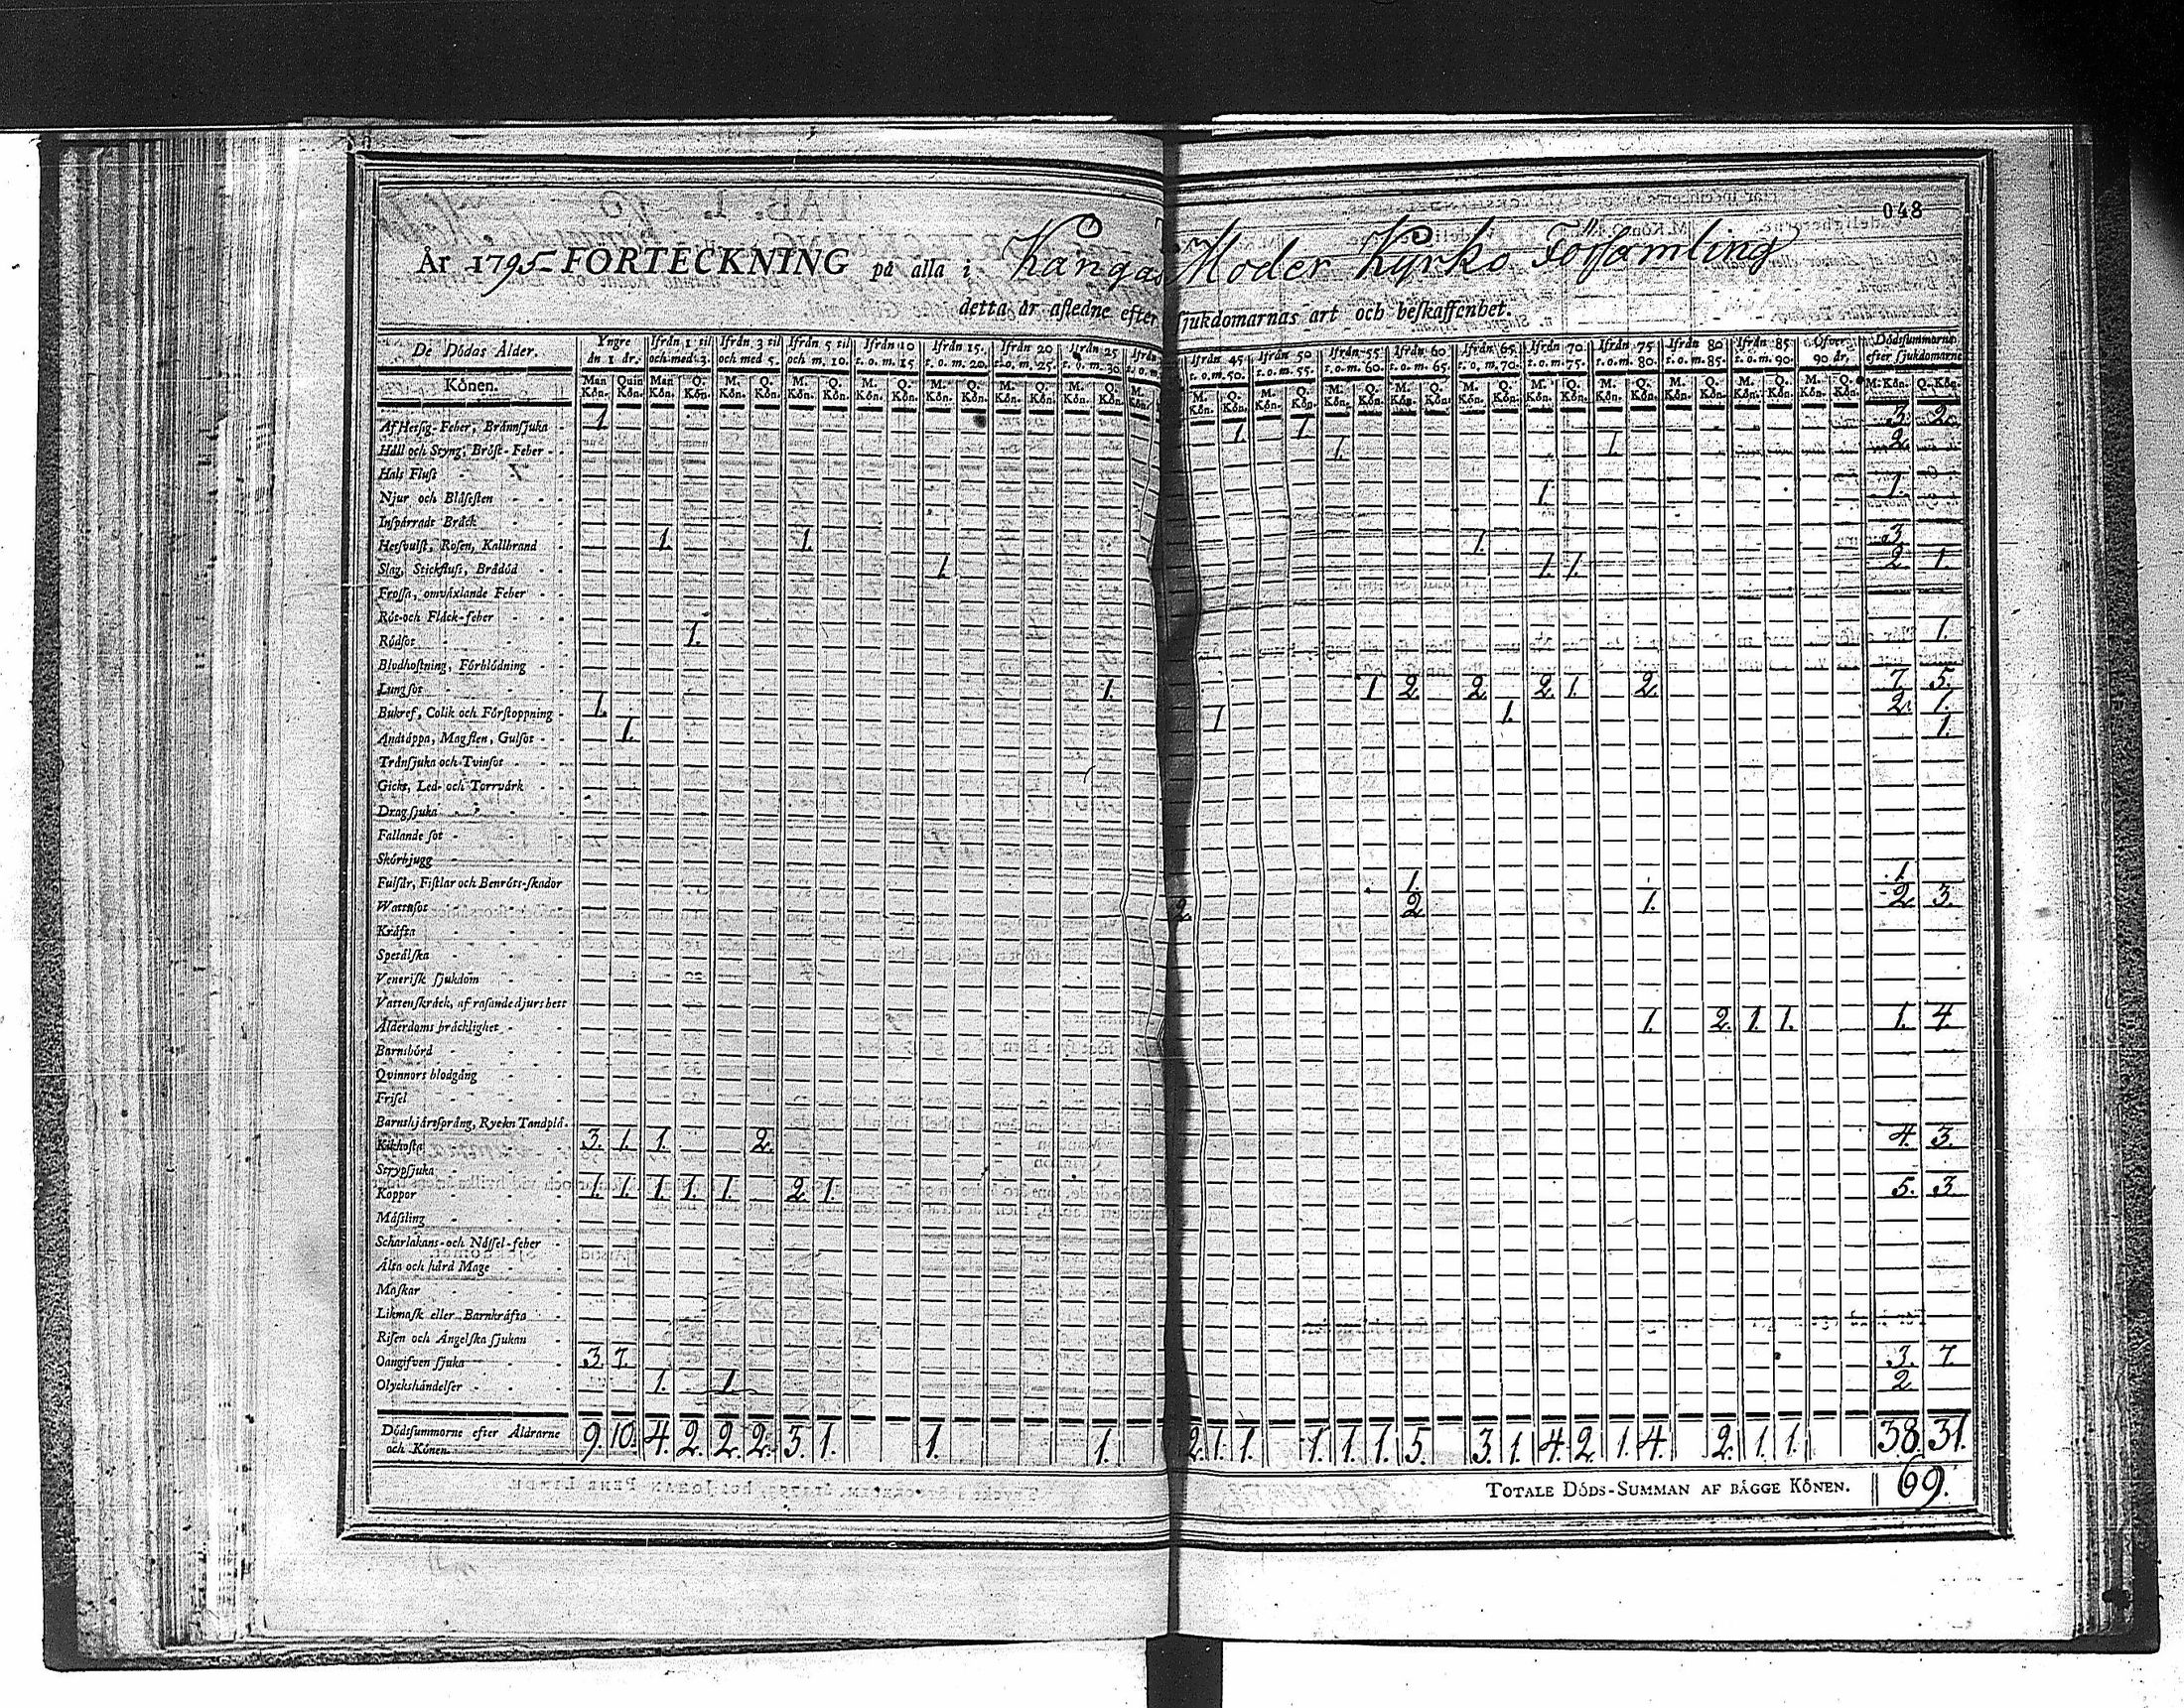 048
År 1795 FÖRTECKNING på alla i Kangas Moder Kyrko Församling
detta år afledne efter sjukdomarnas art och beskaffenhet.
De Dödas Ålder. Yngre än 1 år. Ifrån 1 til och med 3. Ifrån 3 til och med 5. Ifrån 5 til och m. 10. Ifrån 10 t. o. m. 15. Ifrån 15. t. o. m. 20. Ifrån 20 t. o. m. 25. Ifrån 25 t. o. m. 30. Ifrån t. o. m. Ifrån 45 t. o. m. 50. Ifrån 50 t. o. m. 55. Ifrån 55 t. o. m. 60. Ifrån 60 t. o. m. 65. Ifrån 65. t. o. m. 70. Ifrån 70 t. o. m. 75. Ifrån 75 t. o. m. 80. Ifrån 80 t. o. m. 85. Ifrån 85 t. o. m. 90. Öfver 90 år. Dödssummorne efter sjukdomarne
Könen. Man Kön. Quin Kön. Man Kön. Q. Kön. M. Kön. Q. Kön. M. Kön. Q. Kön. M. Kön. Q. Kön. M. Kön. Q. Kön. M. Kön. Q. Kön. M. Kön. Q. Kön. M. Kön. M. Kön. Q. Kön. M. Kön. Q. Kön. M. Kön. Q. Kön. M. Kön. Q. Kön. M. Kön. Q. Kön. M. Kön. Q. Kön. M. Kön. Q. Kön. M. Kön. Q. Kön. M. Kön. Q. Kön. M. Kön. Q. Kön. M. Kön. Q. Kön.
Af Hetsig-Feber, Brännsjuka 1 1. 1. 3. 2.
Håll och Styng, Bröst-Feber 1. 1. 2.
Hals Fluss
Njur och Blåsesten 1. 1.
Inspärradt Bråck
Hetsvulst, Rosen, Kallbrand 1. 1. 1. 3.
Slag, Stickfluss, Brådöd 1. 1. 1. 2. 1.
Frossa, omväxlande Feber
Röt-och Fläck-feber
Rödsot 1. 1.
Blodhostning, Förblödning
Lungsot 1. 1 2. 2. 2. 1. 2. 7. 5.
Bukref, Colik och Förstoppning 1. 1 1. 2. 1.
Andtäppa, Magsten, Gulsot 1. 1.
Trånsjuka och Tvinsot
Gickt, Led- och Torrvärk
Dragsjuka
Fallande sot
Skörbjugg
Fulsår, Fistlar och Benröts-skador 1. 1.
Wattusot 2. 2 1. 2. 3.
Kräfta
Spetälska
Venerisk sjukdom
Vattenskräck, af rasande djurs bett
Ålderdoms bräcklighet 1. 2. 1. 1. 1. 4.
Barnsbörd
Qvinnors blodgång
Frisel
Barnshjärtsprång, Ryckn Tandplå.
Kikhosta 3. 1. 1. 2. 4. 3.
Strypsjuka
Koppor 1. 1. 1. 1. 1. 2. 1. 5. 3.
Mässling
Scharlakans- och Nässel-feber
Ålta och hård Mage
Maskar
Likmask eller Barnkräfta
Risen och Ängelska sjukan
Oangifven sjuka 3. 7. 3. 7.
Olyckshändelser 1. 1. 2
Dödssummorne efter Åldrarne och Könen 9. 10. 4. 2. 2. 2. 3. 1. 1. 1. 2. 1. 1. 1. 1. 1. 5. 3. 1. 4. 2. 1. 4. 2. 1. 1. 38. 31.
TOTALE DÖDS-SUMMAN AF BÅGGE KÖNEN. 69.